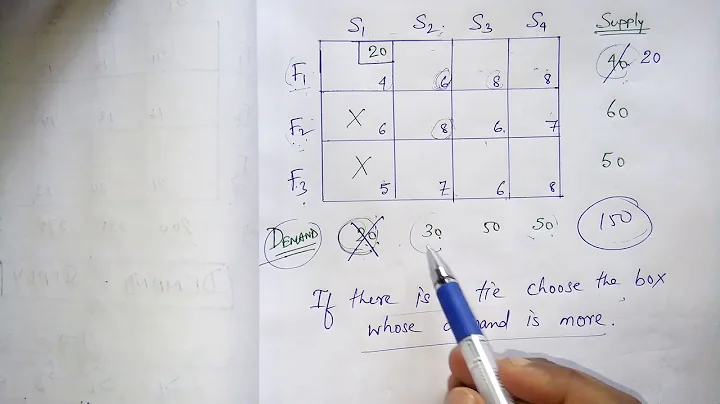 S1 S2 S3 S4 Supply
20
F1 4 6 8 8 40 20
F2 X 6 8 6 7 60
F3 X 5 7 6 8 50
DEMAND 20 30 50 50 150
If there is tie choose the box
whose demand is more.